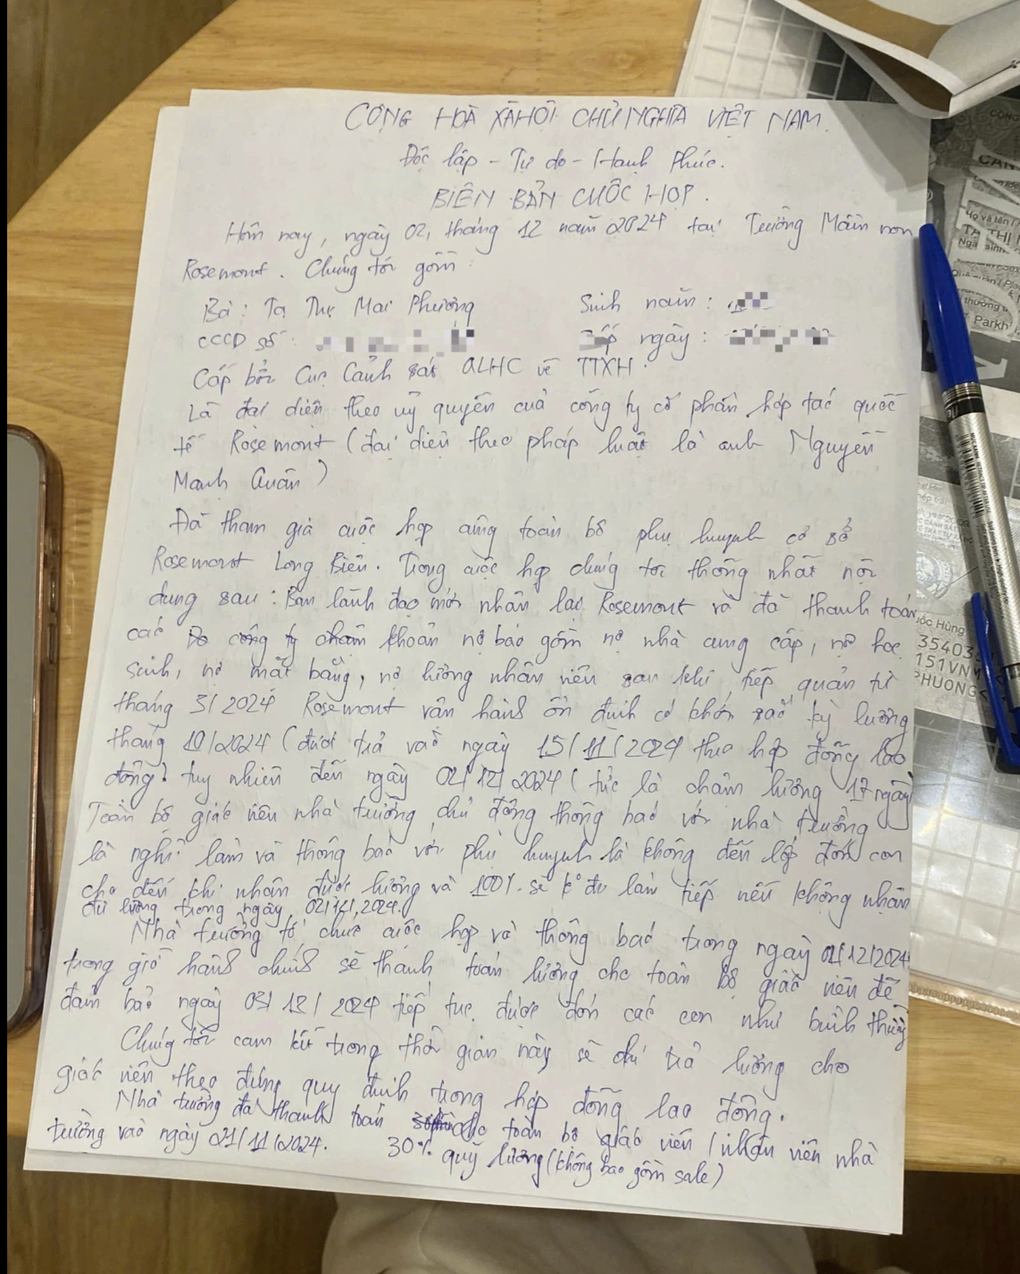 CỘNG HOÀ XÃ HỘI CHỦ NGHĨA VIỆT NAM.
Độc lập - Tự do - Hạnh Phúc.
BIÊN BẢN CUỘC HỌP.
Hôm nay, ngày 02, tháng 12 năm 2024 tại Trường Mầm non
Rosemont. Chúng tôi gồm:
Bà: Tạ Thị Mai Phương Sinh năm:
CCCD số: Cấp ngày:
Cấp bởi Cục Cảnh sát QLHC về TTXH.
Là đại diện theo uỷ quyền của công ty cổ phần hợp tác quốc
tế Rosemont (đại diện theo pháp luật là anh Nguyễn
Mạnh Quân)
Đã tham gia cuộc họp cùng toàn bộ phụ huynh cơ sở
Rosemont Long Biên. Trong cuộc họp chúng tôi thống nhất nội
dung sau: Ban lãnh đạo mới nhận lại Rosemont và đã thanh toán
các khoản nợ bao gồm nợ nhà cung cấp, nợ học
sinh, nợ mặt bằng, nợ lương nhân viên sau khi tiếp quản từ
tháng 3/2024 Rosemont vận hành ổn định có khởi sắc kỳ lương
tháng 10/2024 (được trả vào ngày 15/11/2024 theo hợp đồng lao
động) tuy nhiên đến ngày 02/12/2024 (tức là chậm lương 17 ngày)
Toàn bộ giáo viên nhà trường chủ động thông báo với nhà trường
là nghỉ làm và thông báo với phụ huynh là không đến lớp đón con
cho đến khi nhận được lương và 100% sẽ k° đi làm tiếp nếu không nhận
đủ lương trong ngày 02/12/2024.
Nhà trường tổ chức cuộc họp và thông báo trong ngày 02/12/2024
trong giờ hành chính sẽ thanh toán lương cho toàn bộ giáo viên để
đảm bảo ngày 03/12/2024 tiếp tục được đón các con như bình thường
Chúng tôi cam kết trong thời gian này sẽ chi trả lương cho
giáo viên theo đúng quy định trong hợp đồng lao động.
Nhà trường đã thanh toán cho toàn bộ giáo viên / nhân viên nhà
trường vào ngày 21/11/2024. 30% quỹ lương (không bao gồm sale)
CĂN
Họ và tên /
TẠ THỊ
Parkh
35403
151VNM
PHUONG